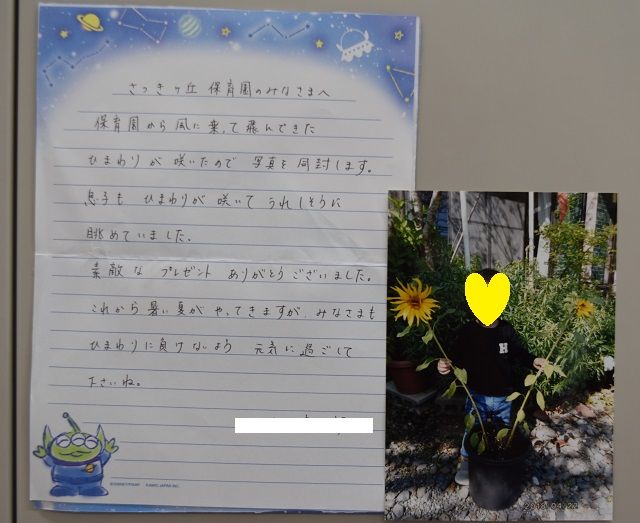 さつきヶ丘 保育園のみなさまへ
保育園から風に乗って飛んできた
ひまわりが咲いたので 写真を同封します。
息子も ひまわりが咲いて うれしそうに
眺めていました。
素敵な プレゼント ありがとうございました。
これから暑い夏がやってきますが、みなさまも
ひまわりに負けないよう 元気に過ごして
下さいね。
©DISNEY/PIXAR KAMIO JAPAN INC.
H